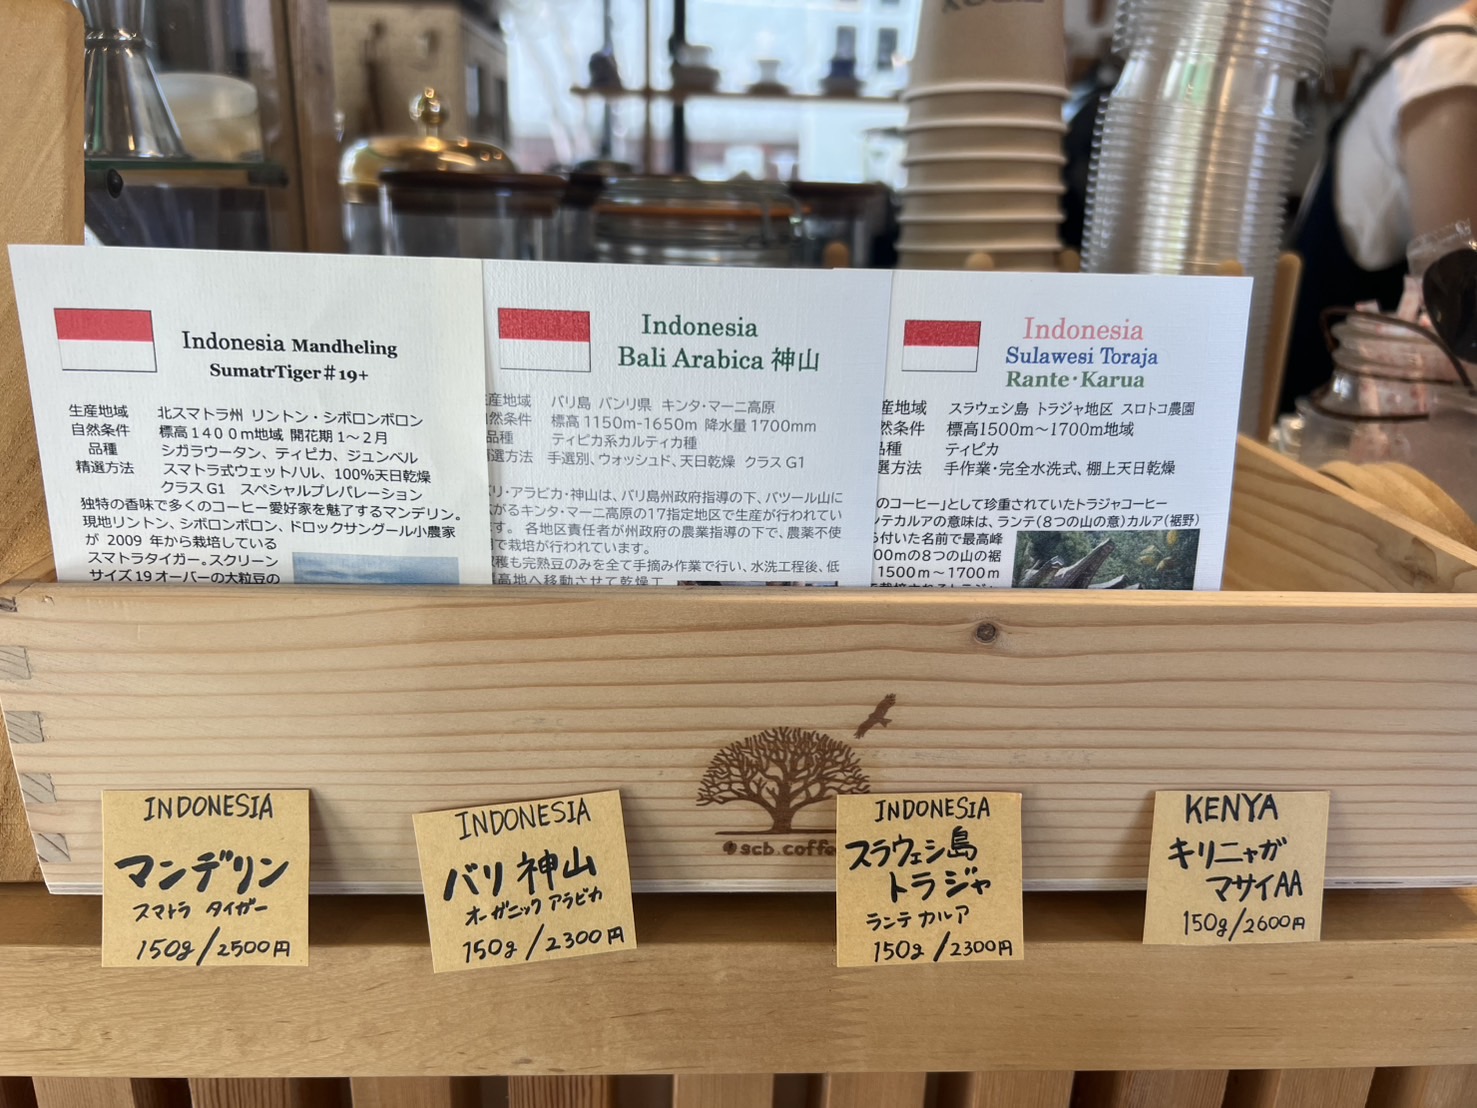 Indonesia Mandheling
SumatrTiger#19+
生産地域 北スマトラ州 リントン・シボロンボロン
自然条件 標高1400m地域 開花期1～2月
品種 シガラウータン、ティピカ、ジュンベル
精選方法 スマトラ式ウェットハル、100%天日乾燥
クラスG1 スペシャルプレパレーション
独特の香味で多くのコーヒー愛好家を魅了するマンデリン。
現地リントン、シボロンボロン、ドロックサングール小農家
が 2009 年から栽培している
スマトラタイガー。スクリーン
サイズ19オーバーの大粒豆の
Indonesia
Bali Arabica 神山
産地域 バリ島 バンリ県 キンタ・マーニ高原
然条件 標高1150m-1650m 降水量1700mm
品種 ティピカ系カルティカ種
選方法 手選別、ウォッシュド、天日乾燥 クラスG1
リ・アラビカ・神山は、バリ島州政府指導の下、バツール山に
がるキンタ・マーニ高原の17指定地区で生産が行われてい
す。 各地区責任者が州政府の農業指導の下で、農薬不使
用で栽培が行われています。
穫も完熟豆のみを全て手摘み作業で行い、水洗工程後、低
高地へ移動させて乾燥工
Indonesia
Sulawesi Toraja
Rante・Karua
産地域 スラウェシ島 トラジャ地区 スロトコ農園
然条件 標高1500m～1700m地域
品種 ティピカ
選方法 手作業・完全水洗式、棚上天日乾燥
のコーヒー」として珍重されていたトラジャコーヒー
ンテカルアの意味は、ランテ(8つの山の意)カルア(裾野)
ら付いた名前で最高峰
00mの8つの山の裾
1500m～1700m
@scb.coffe
INDONESIA
マンデリン
スマトラ タイガー
150g/2500円
INDONESIA
バリ 神山
オーガニック アラビカ
150g/2300円
INDONESIA
スラウェシ島
トラジャ
ランテ カルア
150g/2300円
KENYA
キリニャガ
マサイAA
150g/2600円